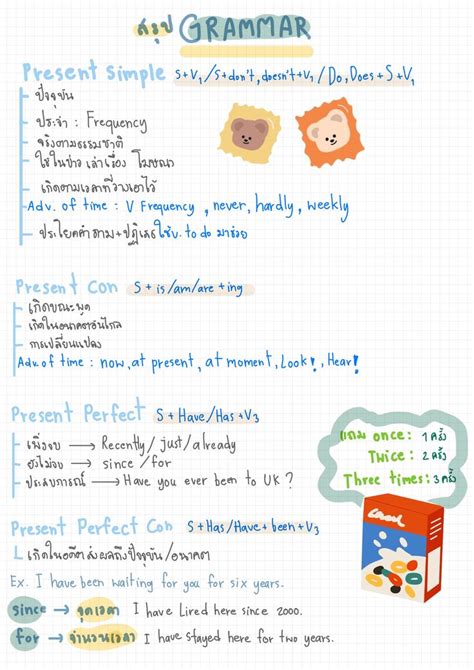 สรุป GRAMMAR
Present Simple S+V1 /S+don't, doesn't+V1 / Do, Does+S+V1
ปัจจุบัน
ประจำ : Frequency
จริงตามธรรมชาติ
ใช้ในข่าว เล่าเรื่อง โฆษณา
เกิดตามเวลาที่วางเอาไว้
Adv. of time : V Frequency , never, hardly, weekly
ประโยคคำถาม+ปฏิเสธใช้v. to do มาช่วย
Present Con S + is/am/are +ing
เกิดขณะพูด
เกิดในอนาคตอันใกล้
การเปลี่ยนแปลง
Adv. of time : now, at present, at moment, Look!, Hear!
Present Perfect S + Have/Has +V3
เพิ่งจบ → Recently/ just/already
ยังไม่จบ → since /for
ประสบการณ์ → Have you ever been to UK ?
แถม once: 1 ครั้ง
Twice: 2 ครั้ง
Three times: 3 ครั้ง
Present Perfect Con S+Has/Have+been+V3
เกิดในอดีตส่งผลถึงปัจจุบัน/อนาคต
Ex. I have been waiting for you for six years.
since → จุดเวลา I have Lired here since 2000.
for → จำนวนเวลา I have stayed here for two years.